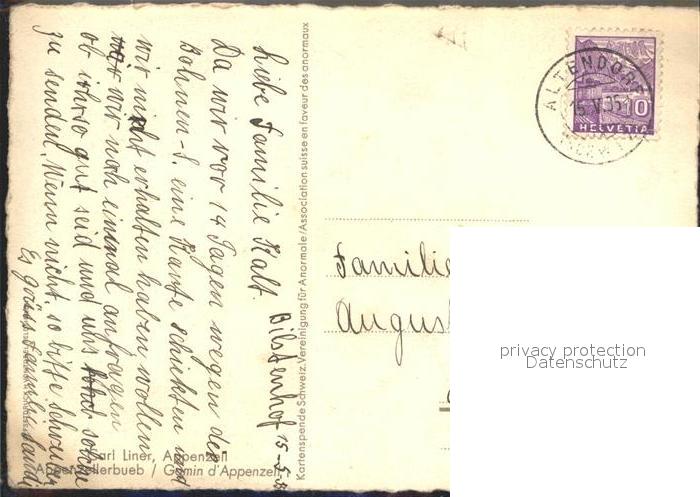 Bilstenhof 15-5.35
Liebe Familie Kalt.
Da wir vor 14 Tagen wegen den
Bohnen-S. eine Karte schickten und
wir nicht erhalten haben wollen
wir noch einmal anfragen
ob ihr so gut seid und uns solche
zu senden. Wenn nicht, so bitte
Es grüsst
Karl Liner, Appenzell
Appenzellerbueb / Gamin d'Appenzell
Kartenspende Schweiz. Vereinigung für Anormale/Association suisse en faveur des anormaux
ALTENDORF
15.V.35
10
HELVETIA
Familie
August
privacy protection
Datenschutz